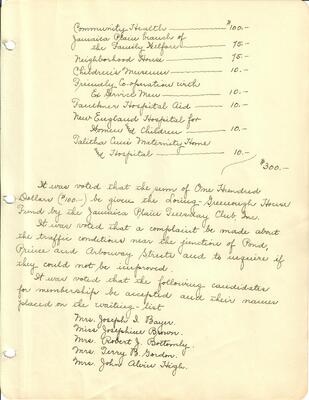 Community Health $100.-
Jamaica Plain branch of
the Family Welfare 75.-
Neighborhood House 75.-
Children's Museum 10.-
Friendly Co-operation with
Ex Service Men 10.-
Faulkner Hospital Aid 10.-
New England Hospital for
Women & Children 10.-
Talitha Cumi Maternity Home
& Hospital 10.-
$300.-
It was voted that the sum of One Hundred
Dollars ($100.-) be given the Loring-Greenough House
Fund by the Jamaica Plain Tuesday Club, Inc.
It was voted that a complaint be made about
the traffic conditions near the junction of Pond,
Prince and Arborway Streets and to inquire if
they could not be improved.
It was voted that the following candidates
for membership be accepted and their names
placed on the waiting-list
Mrs. Joseph I. Bayer.
Miss Josephine Brown.
Mrs. Robert J. Bottomly.
Mrs. Perry B. Gordon.
Mrs. John Alvin High.